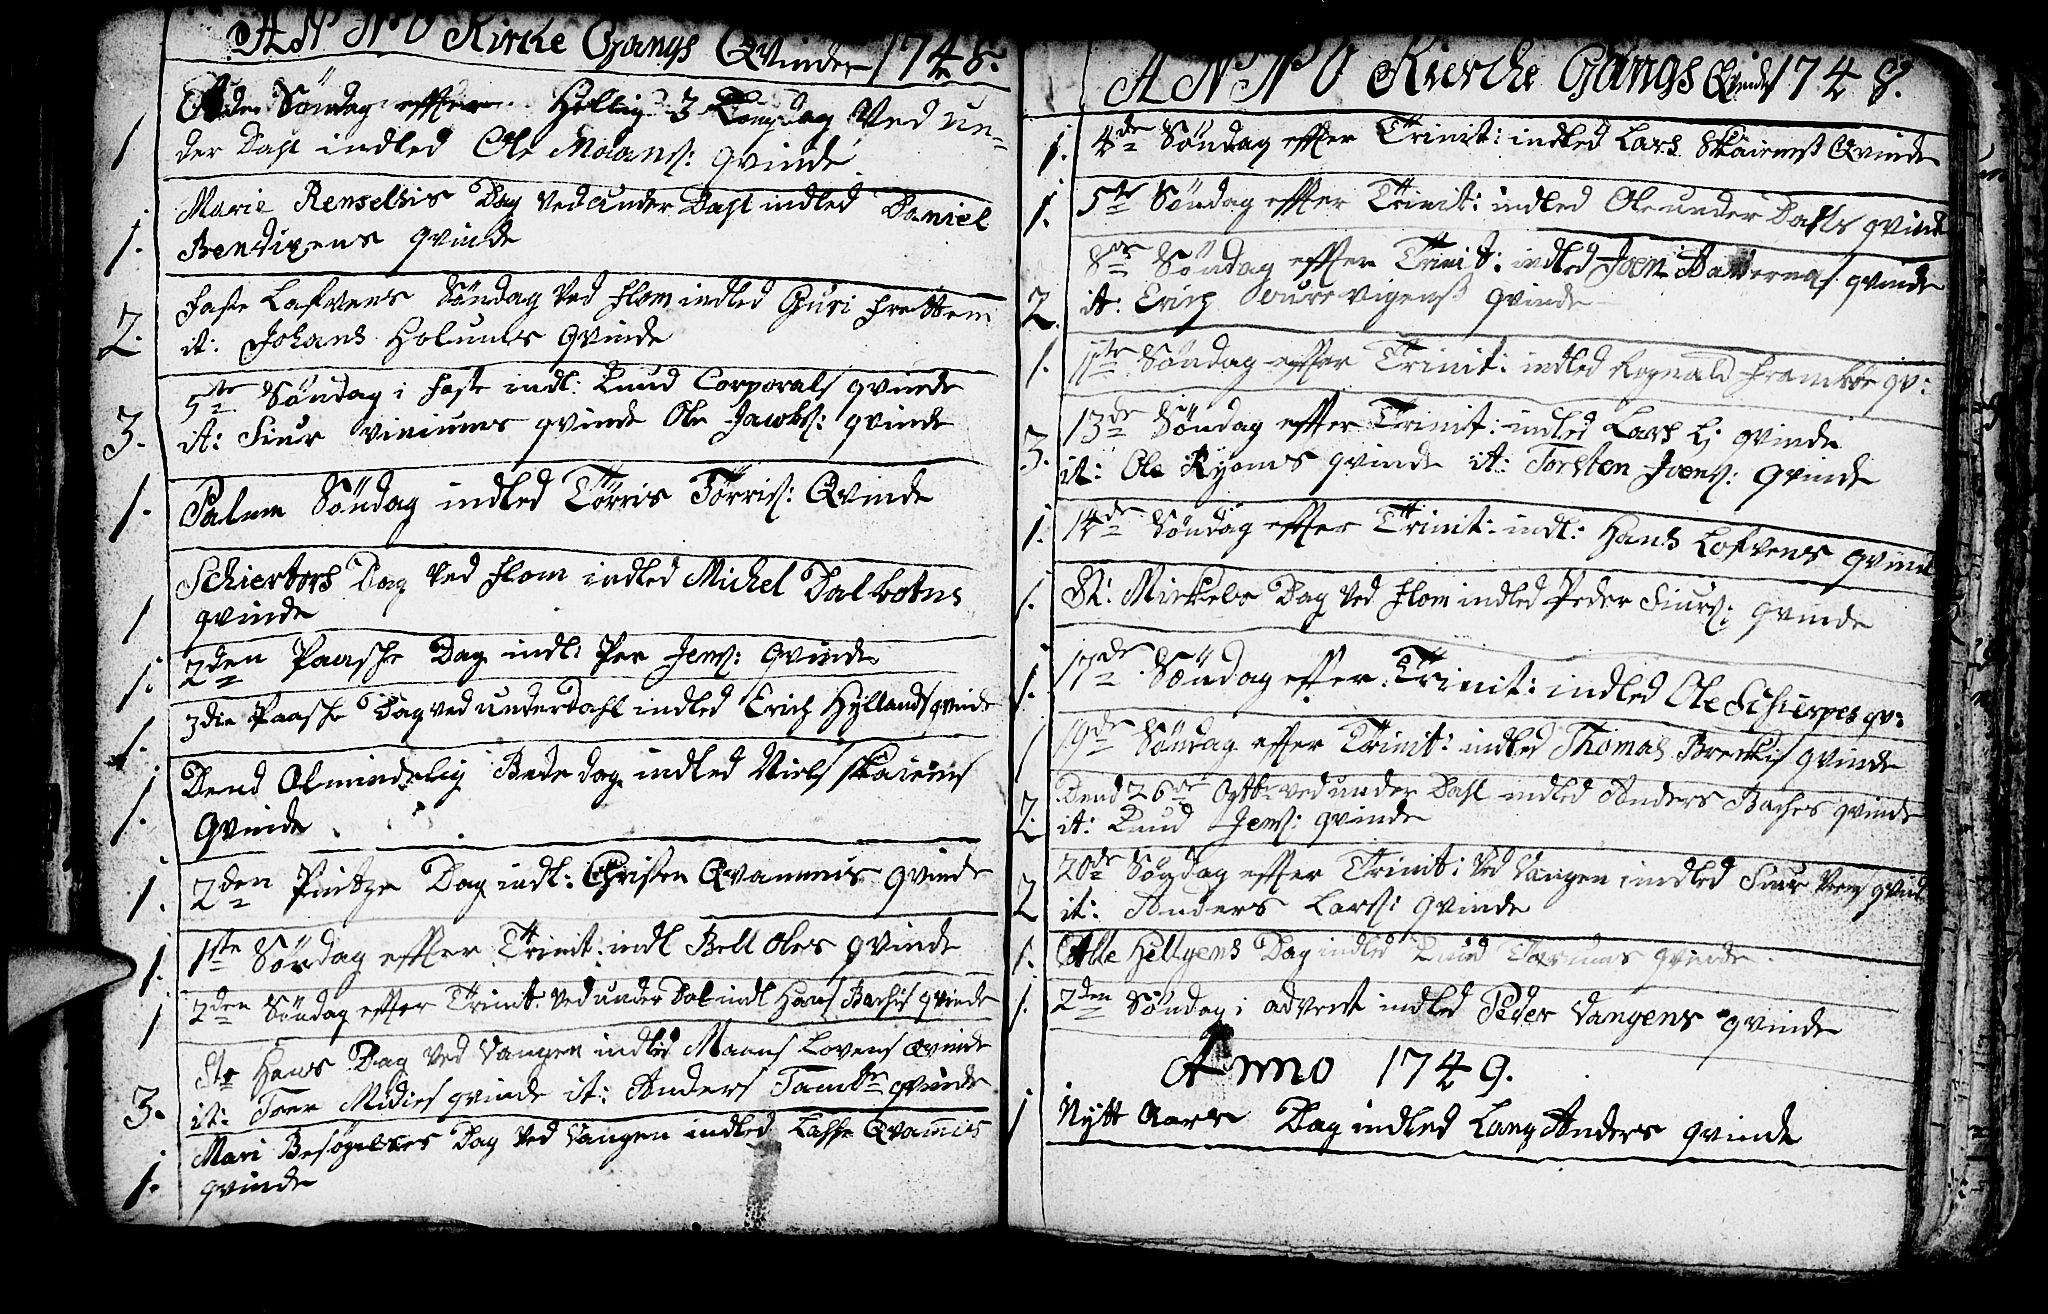 ANNO Kircke Gangs Qvinder 1748.
1 Søndag effter Hellig 3 Kong Dag Ved un=
der Dahl indled Ole Molans: qvinde
1. Marie Renselsis Dag Ved under Dahl indled Daniel
Bendixens qvinde
2. Faste Lafvens Søndag Ved Flom indled Guri Frettem
it: Johans Holums qvinde
3. 5te Søndag i Faste indl: Knud Corporals qvinde
it: Siur Viniums qvinde Ole Jacobs: qvinde
1. Palme Søndag indled Tørris Tørris: Qvinde
1 Schiertors Dag Ved Flom indled Michel Dalbotns
qvinde
1. 2den Paasche Dag indl: Per Jens: qvinde
1. 3die Paasche Dag ved underdahl indled Erich Hyllands qvinde
1. Dend Almindelig Bede dag indled Niels Skaiems
Qvinde
1. 2den Pintze Dag indl: Christen Qvammis qvinde
1. 1ste Søndag effter Trinit: indl Bell Oles qvinde
1 2den Søndag effter Trinit: Ved under Dal indl Hans Bachis qvinde
3. Ste Hans Dag Ved Vangen indled Maans Lovens qvinde
it: Toer Midies qvinde it: Anders qvinde
1. Mari Besøgelses Dag Ved Vangen indled Lasse Qvamis
qvinde
ANNO Kiercke Gangs Qvinder 1748.
1. 4de Søndag effter Trinit: indled Lars Skaiems Qvinde
1. 5te Søndag effter Trinit: indled Ole under Dahls qvinde
2. 8de Søndag effter Trinit: indled Joen qvinde
it: Erich qvinde
1. 11te Søndag effter Trinit: indled Rognald Framboe qv:
3. 13de Søndag effter Trinit: indled Lars Li qvinde
it: Ole Ryoms qvinde it: Torsten Joens: qvinde
1. 14de Søndag effter Trinit: indl: Hans Lofvens qvinde
1. St: Mickels Dag Ved Flom indled Peder Siurs: qvinde
1. 17de Søndag effter Trinit: indled Ole Schierpes qv:
1 19de Søndag effter Trinit: indled Thomas Breckis qvinde
2. Dend 26de Octbr ved under Dahl indled Anders Baches qvinde
it: Knud Jens: qvinde
2 20de Søndag effter Trinit: Ved Vangen indled Siur qvinde
it: Anders Lars: qvinde
1. Alle Helgens Dag indled Knud qvinde
1. 2den Søndag i advent indled Peder Vangens qvinde
Anno 1749.
1 Nytt Aars Dag indled Lang Anders qvinde